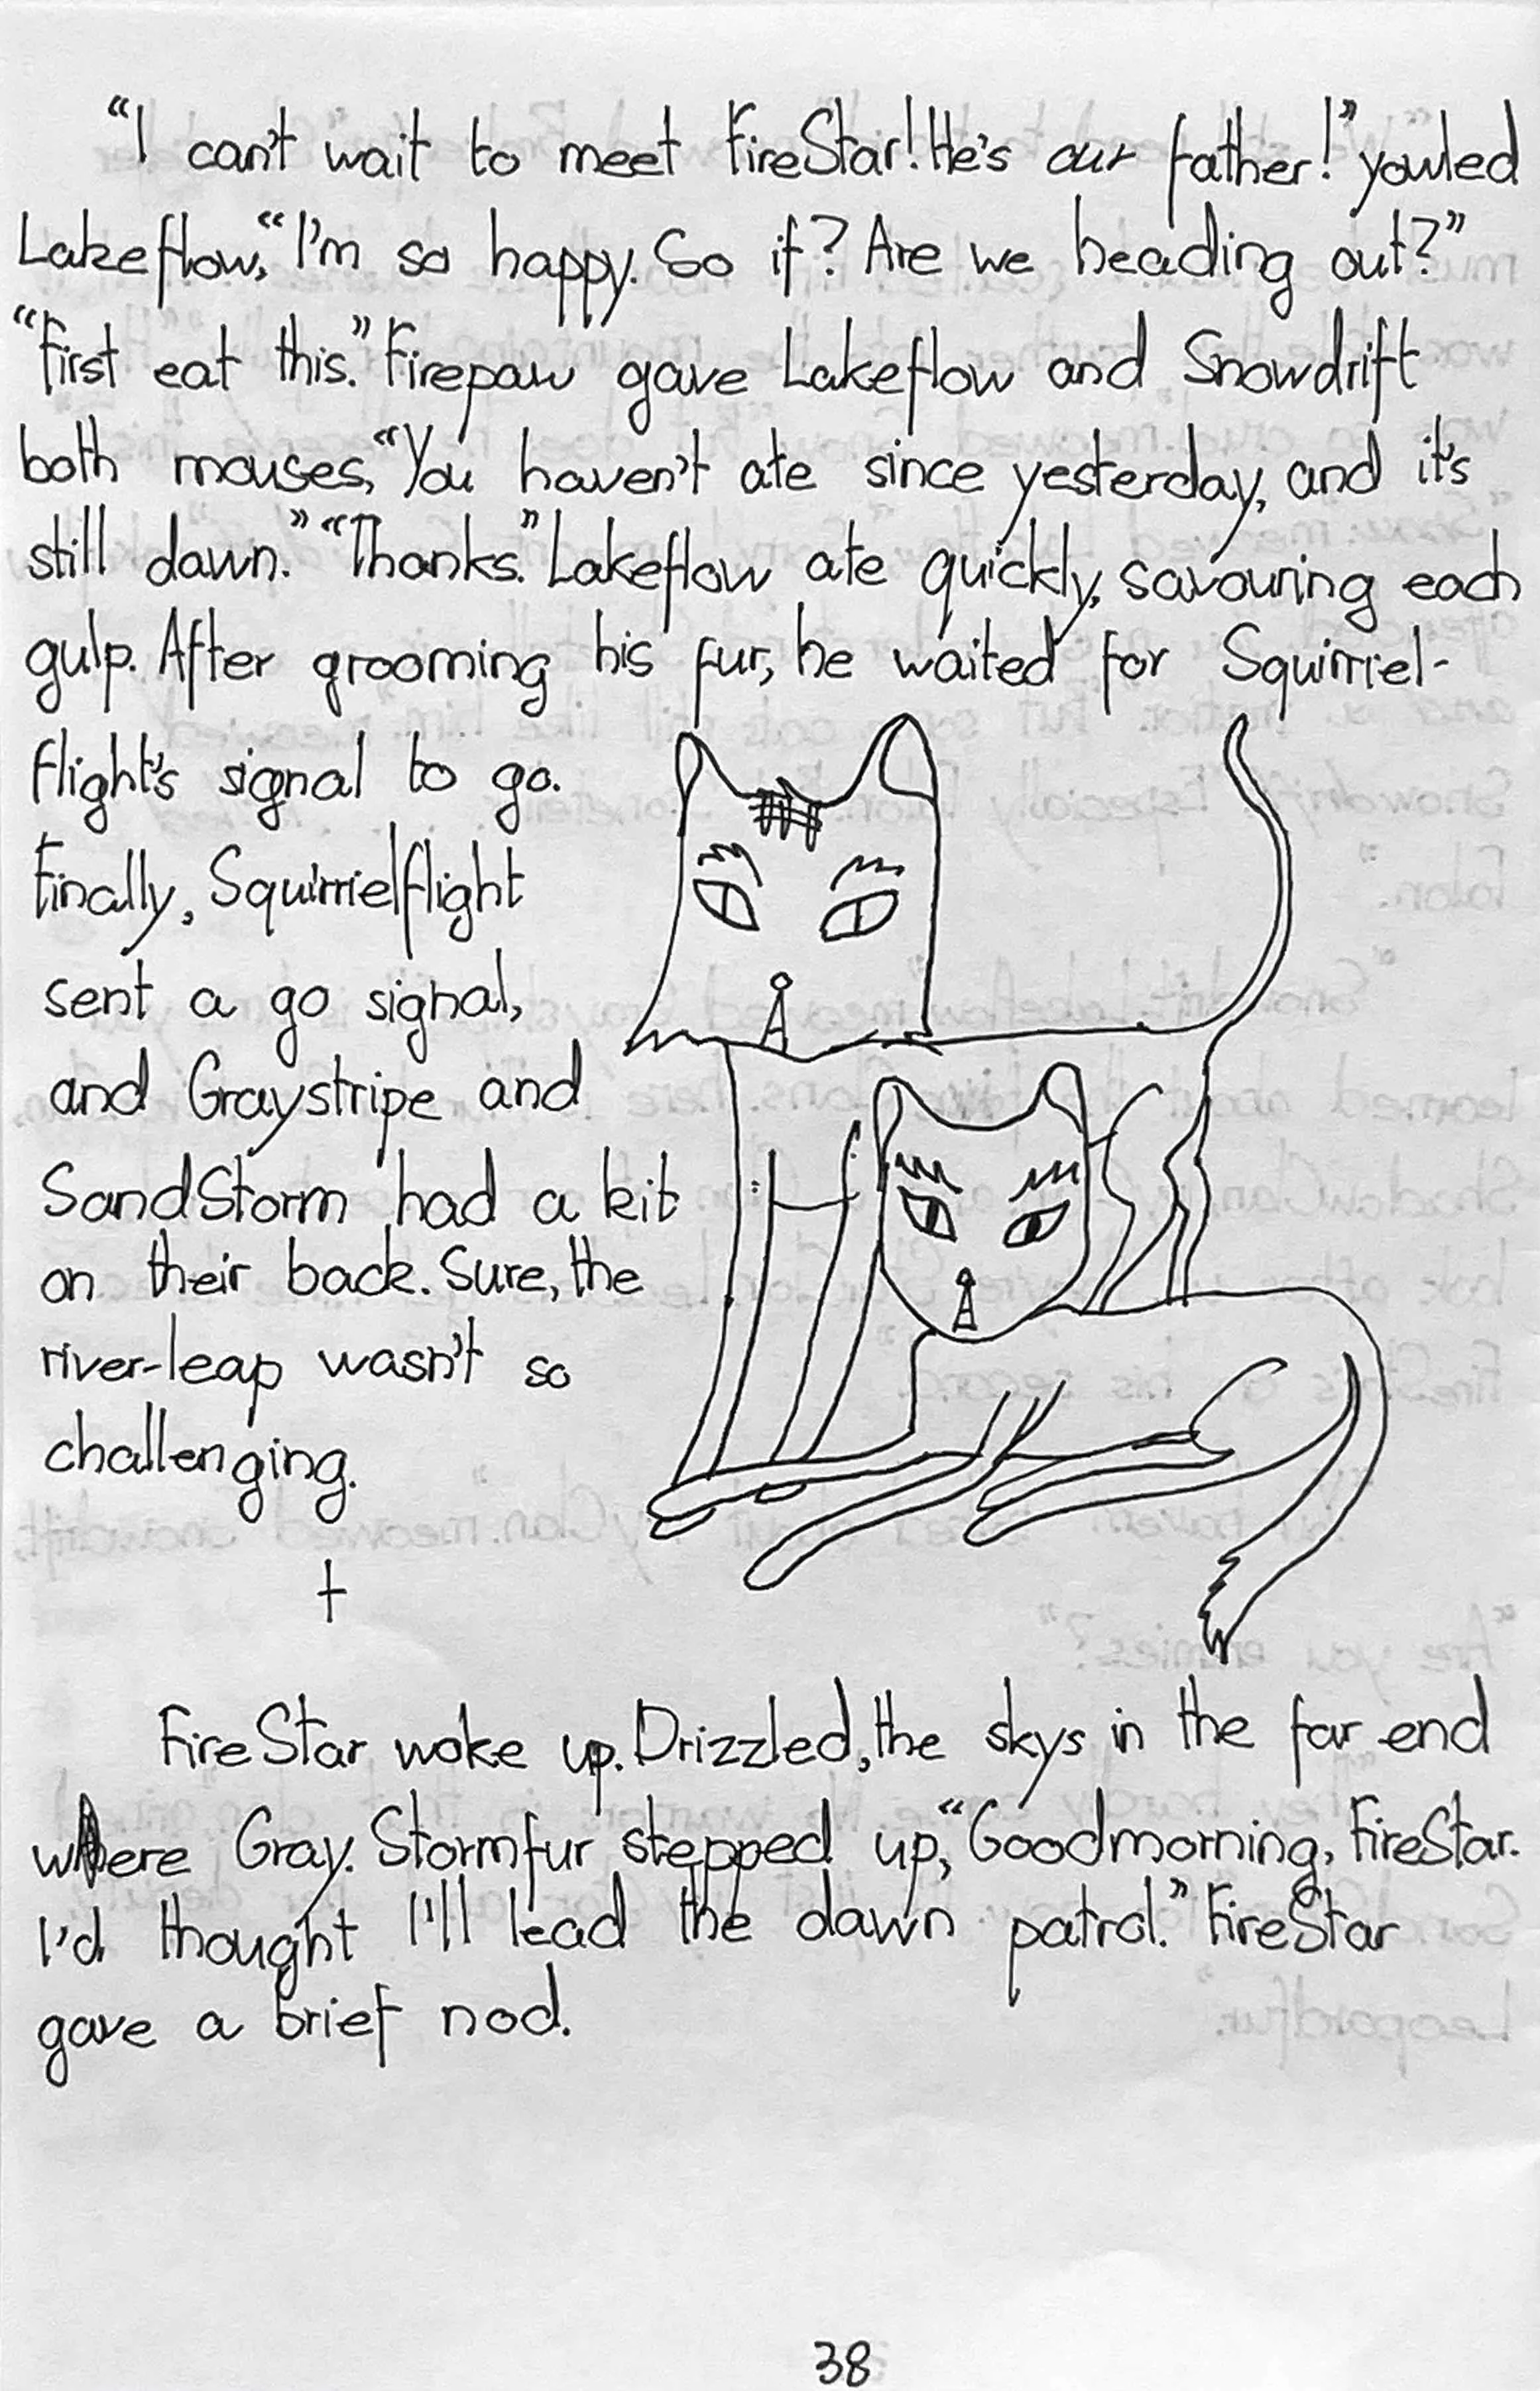 “I can't wait to meet FireStar! He's our father!” yowled
Lakeflow, “I'm so happy. So if? Are we heading out?”
“First eat this.” Firepaw gave Lakeflow and Snowdrift
both mouses, “You haven't ate since yesterday, and it's
still dawn.” “Thanks.” Lakeflow ate quickly, savouring each
gulp. After grooming his fur, he waited for Squirriel-
flight's signal to go.
Finally, Squirrielflight
sent a go signal,
and Graystripe and
SandStorm had a kit
on their back. Sure, the
river-leap wasn't so
challenging.
†
FireStar woke up. Drizzled, the skys in the far end
where Gray. Stormfur stepped up, “Goodmorning, FireStar.
I'd thought I'll lead the dawn patrol.” FireStar
gave a brief nod.
38